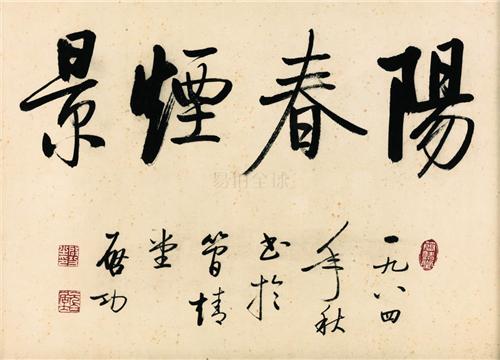 陽春煙景
一九八四
年秋
书於
简靖
堂
啓功
易拍全球